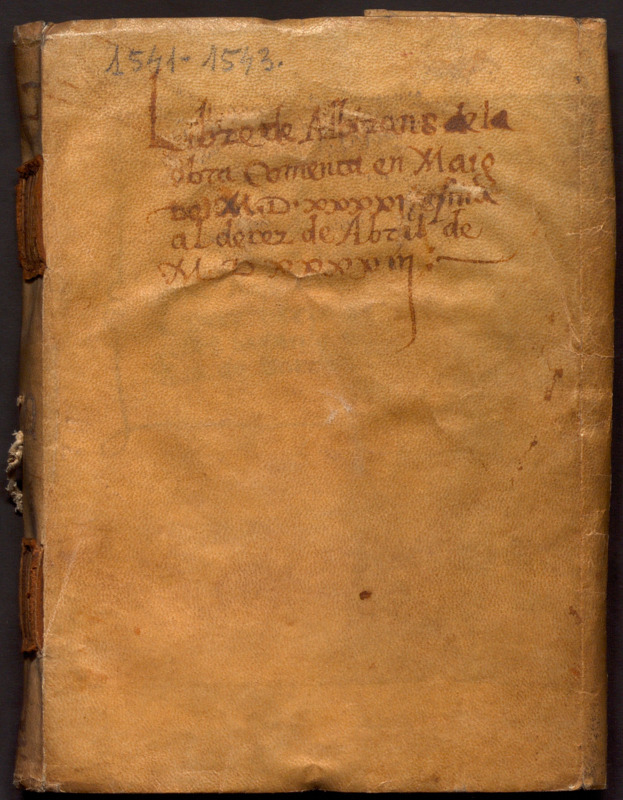 1541-1543.
Llibre de Albarans de la
obra Comença en Maig
de M.D.xxxxi. e fina
al derer de Abril de
M D xxxxiii: